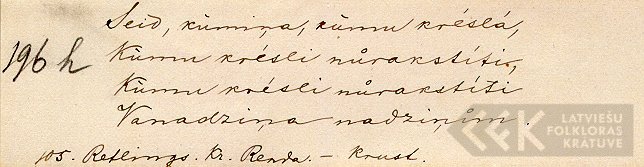 Seid, kūmiņa, kūmu krēslā,
196 h
Kūmu krēsli nūrakstīti,
Kūmu krēsli nūrakstīti
Vanadziņa nadziņim.
105. Retlings. Kr. Renda. – Krust.
LATVIEŠU
FOLKLORAS
KRATUVE